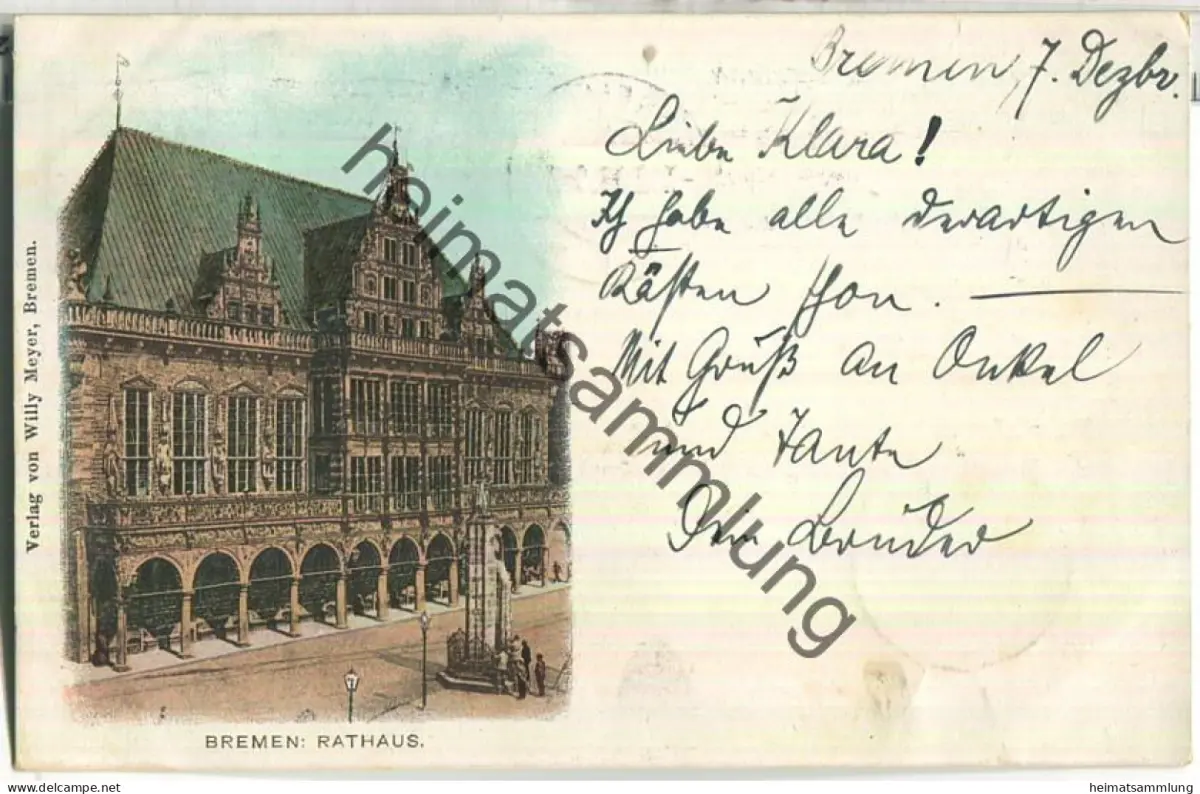 Bremen, 7. Dezbr.
Liebe Klara!
Ich habe alle derartigen
Kästen schon.
Mit Gruß an Onkel
und Tante
Dein Bruder
Verlag von Willy Meyer, Bremen.
BREMEN: RATHAUS.
heimatsammlung
www.heimatsammlung.de
heimatsammlung